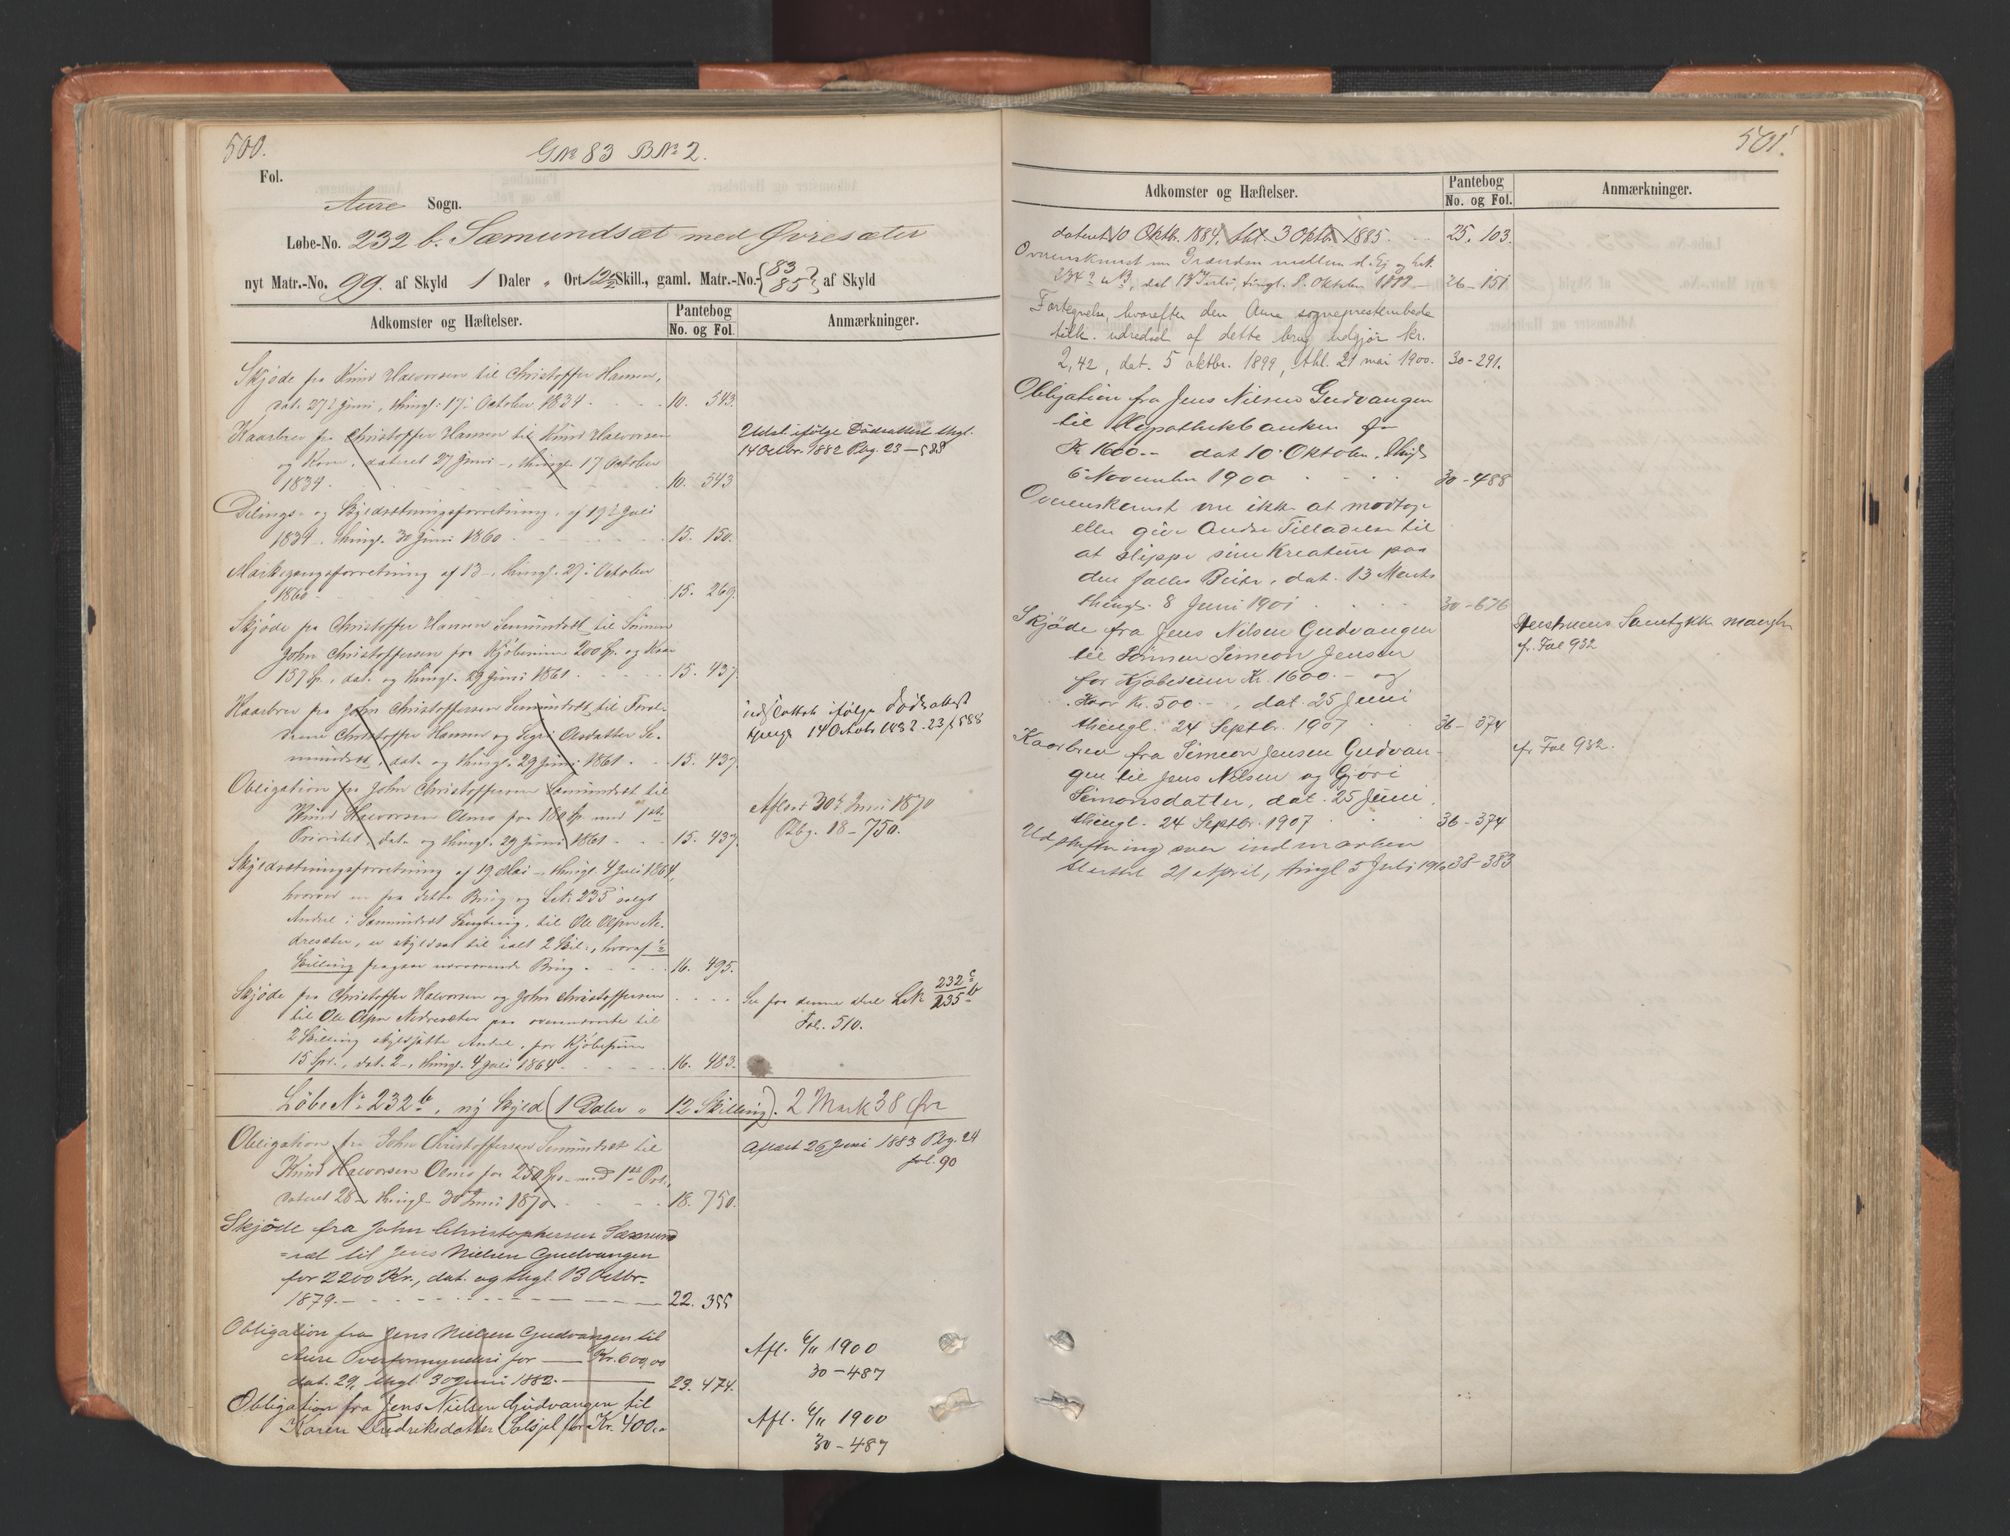 500.
GNº 83 BNº 2.
Fol.
Aure Sogn.
Løbe-No. 232 b. Sæmundsæt med Øvresæter
nyt Matr.-No. 99. af Skyld 1 Daler „ Ort 12 Skill., gaml. Matr.-No. {83 85} af Skyld
Adkomster og Hæftelser.
Pantebog
No. og Fol.
Anmærkninger.
Skjøde fra Knud Halvorsen til Christoffer Hansen,
dat. 27 Juni, thingl. 17 October 1834. 10. 543.
Kaarbrev fra Christoffer Hansen til Knud Halvorsen
og Kone, dateret 27 Juni, thingl. 17 October
1834 10. 543
Udsl. ifølge Dødsattest thgl.
14 Octbr. 1882 Pbg. 23 – 588
Delings- og Skyldsætningsforretning, af 19 Juli
1834, thingl. 30 Juni 1860 15. 150.
Markegangsforretning af 13, thingl. 27 October
1860 15. 269.
Skjøde fra Christoffer Hansen Semundset til Sønnen
John Christoffersen for Kjøbesum 200 Sp. og Kaar
157 Sp., dat. og thingl. 29 Juni 1861 15. 437.
Kaarbrev fra John Christoffersen Semundset til Foræl-
drene Christoffer Hansen og Segri Asdatter Se-
mundset, dat. og thingl. 29 Juni 1861 15. 437.
udslettet ifølge Dødsattest
thingl. 14 Octob. 1882. 23 f. 588
Obligation fra John Christoffersen Semundset til
Knud Halvorsen Oenes for 180 Sp. med 1ste
Prioritet, dat. og thingl. 29 Juni 1861 15. 437.
Aflæst 30 Juni 1870
Pbg. 18 – 750.
Skyldsætningsforretning af 19 Mai, thingl. 4 Juli 1864,
hvorved en fra dette Brug og L.N. 235 solgt
Andel i Sæmundset, til Ole Olsen Ne-
dresæter, er skyldsat til ialt 2 Skil., hvoraf ½
Skilling fragaar nærværende Brug 16. 495.
Skjøde fra Christoffer Halvorsen og John Christoffersen
til Ole Olsen Nedresæter paa ovennævnte til
2 Skilling skyldsatte Andel, for Kjøbesum
15 Spd., dat. 2, thingl. 4 Juli 1864 16. 483.
Se for denne Deel L.N. 232 c 235 b
Fol. 510.
Løbe Nº 232 b, ny Skyld (1 Daler „ 12 Skilling). 2 Mark 38 Øre
Obligation fra John Christoffersen Semundset til
Knud Halvorsen Oenes for 250 Sp. med 1ste Pri.,
dateret 28, thingl. 30 Juni 1870 18. 750.
Aflæst 26 Juni 1883 Pbg. 24
fol. 90
Skjøde fra John Christophersen Sæmund-
=sæt til Jens Nielsen Gudvangen
for 2200 Kr., dat. og thgl. 13 Octbr.
1879. 22. 355
Obligation fra Jens Nielsen Gudvangen til
Aure Overformynderi for Kr. 600,00
dat. 29, thgl. 30 Juni 1882. 23. 474.
Afl. 6/11 1900
30 – 487
Obligation fra Jens Nielsen Gudvangen til
Karen Fredriksdatter Solsjel for Kr. 400.
Afl. 6/11 1900
30 – 487
501.
Adkomster og Hæftelser.
Pantebog
No. og Fol.
Anmærkninger.
dateret 10 Oktbr. 1884, thl. 3 Oktbr. 1885. 25. 103.
Overenskomst om Grændsen mellem d. Ej og L.N.
234 a, dat 13 Juli, tingl. 8. Oktober 1898 26 – 151
Fortegnelse, hvorefter den Aure sogneprestembede
tilk. udredsel af dette brug udgjør kr.
2,42, dat. 5 oktbr. 1899, thl. 21 mai 1900. 30 – 291.
Obligation fra Jens Nilsen Gudvangen
til Hypothekbanken for
Kr. 1600.– dat 10. Oktober, thingl.
6 November 1900 30 – 488
Overenskomst om ikke at modtage
eller give Andre Tilladelse til
at slippe sine Kreature paa
den fælles Beite, dat. 13 Marts
thingl. 8 Juni 1901 30 – 676
Skjøde fra Jens Nilsen Gudvangen
til Sønnen Simeon Jensen
for Kjøbesum Kr. 1600.– og
Kaar Kr. 500. –, dat. 25 Juni
thingl. 24 Septbr. 1907 36 – 374
Hustruens Samtykke mangler
cfr. Fol 932
Kaarbrev fra Simeon Jensen Gudvan-
gen til Jens Nilsen og Gjøri
Simonsdatter, dat. 25 Juni,
thingl. 24 Septbr. 1907 36 – 374
cfr. Fol 932.
Udskiftning over indmarken
sluttet 21 April, tingl 5 Juli 1910 38 – 383